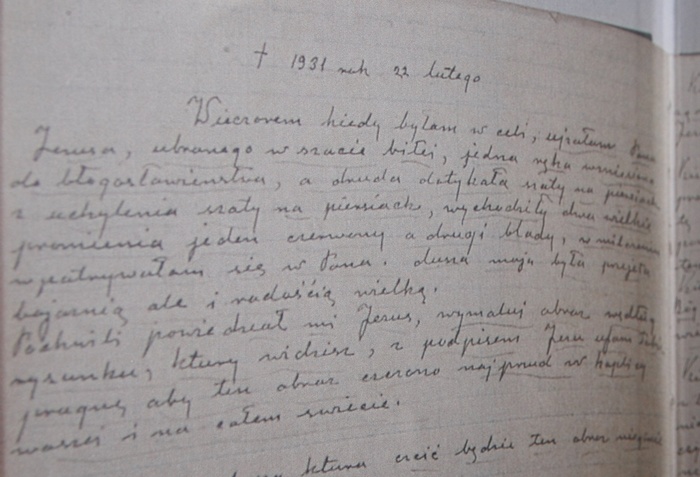 † 1931 rok 22 lutego
Wieczorem kiedy byłam w celi, ujrałam Pana
Jezusa, ubranego w szacie białej, jedna ręka wzniesiona
do błogosławieństwa, a druda dotykała szaty na piersiach
z uchylenia szaty na piersiach, wychodziły dwa wielkie
promienia jeden czerwony a drugi blady, w milczeniu
wpatrywałam się w Pana. dusza moja była przejęta
bojaźnią ale i radością wielką.
Pochwili powiedział mi Jezus, wymaluj obraz według
rysunku, ktury widzisz, z podpisem Jezu ufam Tobie,
pragnę aby ten obraz czczono najprzud w kaplicy
waszej i na całem świecie.
ktura czcić będzie ten obraz